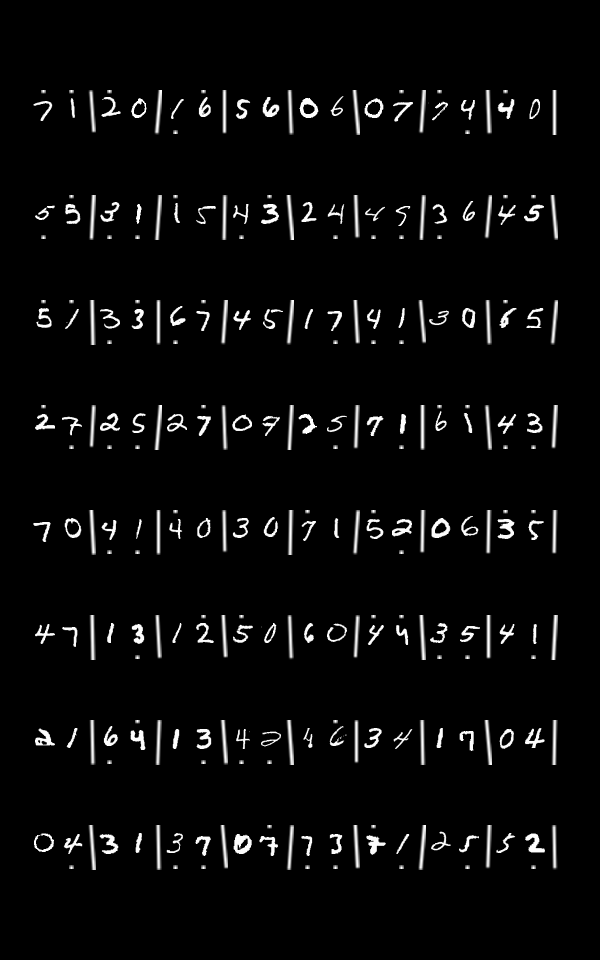 7̇ 1̇ | 2̇ 0 | 1̣ 6̇ | 5 6 | 0 6 | 0 7̇ | 7̇ 4̣ | 4̇ 0 |
5̣ 5̇ | 3̣ 1̣ | 1̇ 5 | 4̣ 3 | 2 4̣ | 4̣ 5̣ | 3̣ 6 | 4̇ 5̇ |
5 1̇ | 3 3̣ | 6̣ 7̇ | 4 5 | 1 7̣ | 4̣ 1̣ | 3 0 | 6̇ 5 |
2̇ 7̣ | 2̣ 5̣ | 2 7̇ | 0 7 | 2 5̣ | 7 1̣ | 6̇ 1̇ | 4̣ 3̣ |
7 0 | 4̣ 1̣ | 4̇ 0 | 3 0 | 7̇ 1 | 5̇ 2̣ | 0 6 | 3̇ 5̇ |
4 7 | 1 3̣ | 1 2̇ | 5̇ 0 | 6 0 | 4̇ 4̇ | 3̣ 5̣ | 4 1̣ |
2 1 | 6̣ 4̇ | 1 3̣ | 4̣ 2̣ | 4 6̇ | 3 4 | 1 7 | 0 4 |
0 4̣ | 3 1 | 3̣ 7̣ | 0 7̇ | 7̣ 3̣ | 7̇ 1̣ | 2 5̣ | 5 2̣ |